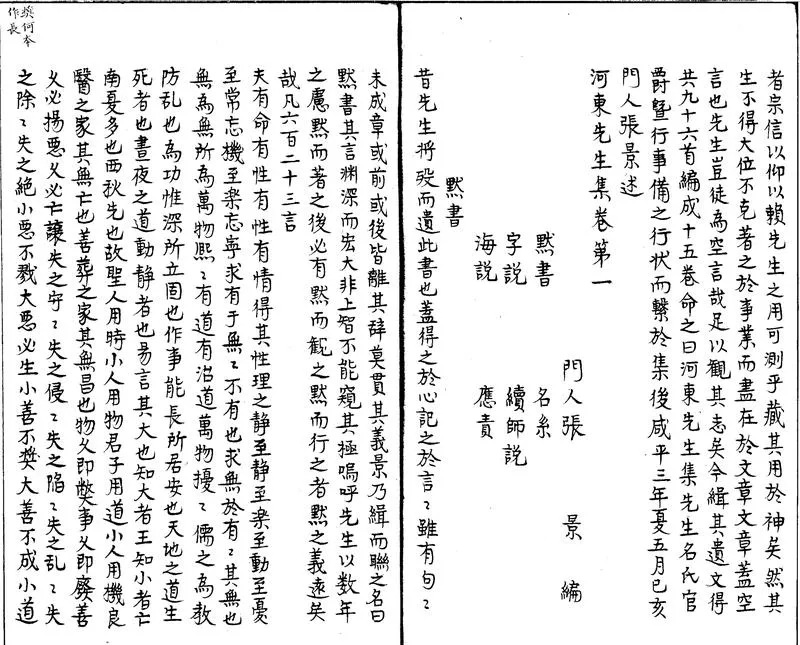 者宗信以仰以賴先生之用可測乎藏其用於神矣然其
生不得大位不克著之於事業而盡在於文章文章蓋空
言也先生豈徒為空言哉足以觀其志矣今緝其遺文得
共九十六首編成十五卷命之曰河東先生集先生名氏官
爵暨行事備之行狀而繫於集後咸平三年夏五月己亥
門人張景述
河東先生集卷第一
門人張 景 編
默書 名系
字說 續師說
海說 應責
默書
昔先生將歿而遺此書也蓋得之於心記之於言〻雖有句〻
未成章或前或後皆離其辞莫貫其義景乃緝而聯之名曰
默書其言渊深而宏大非上智不能窺其極嗚呼先生以数年
之慮默而著之後必有默而觀之默而行之者默之義遠矣
哉凡六百二十三言
夫有命有性有性有情得其性理之静至静至楽至動至憂
至常忘機至楽忘寧求有于無〻不有也求無於有〻其無也
無為無所為萬物熙〻有道有治道萬物擾〻儒之為教
防乱也為功惟深所立固也作事能長所居安也天地之道生
死者也晝夜之道動静者也易言其大也知大者王知小者亡
南夏多也西秋先也故聖人用時小人用物君子用道小人用機良
醫之家其無亡也善葬之家其無昌也物父即獘事父即廢善
父必揚悪父必亡讓失之守〻失之侵〻失之陷〻失之乱〻失
之除〻失之絶小悪不戮大悪必生小善不奬大善不成小道
奬何本
作長